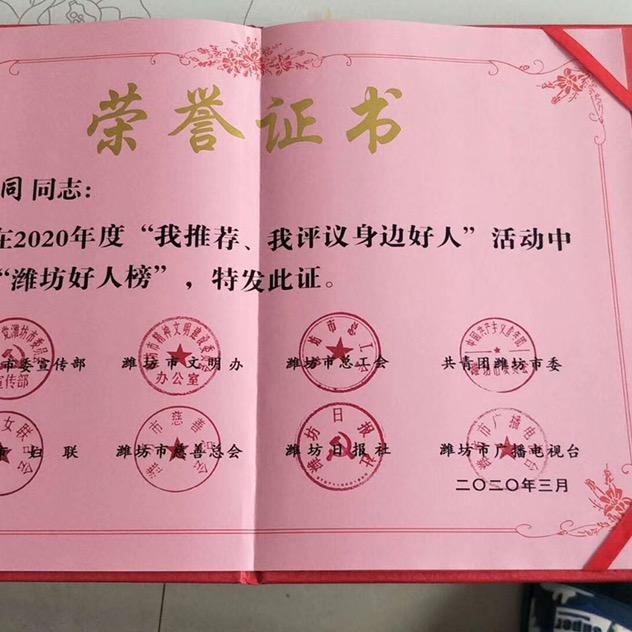 荣誉证书
同 同志：
在2020年度“我推荐、我评议身边好人”活动中
“潍坊好人榜”，特发此证。
市委宣传部 潍坊市文明办 潍坊市总工会 共青团潍坊市委
市妇联 潍坊市慈善总会 潍坊日报社 潍坊市广播电视台
二〇二〇年三月